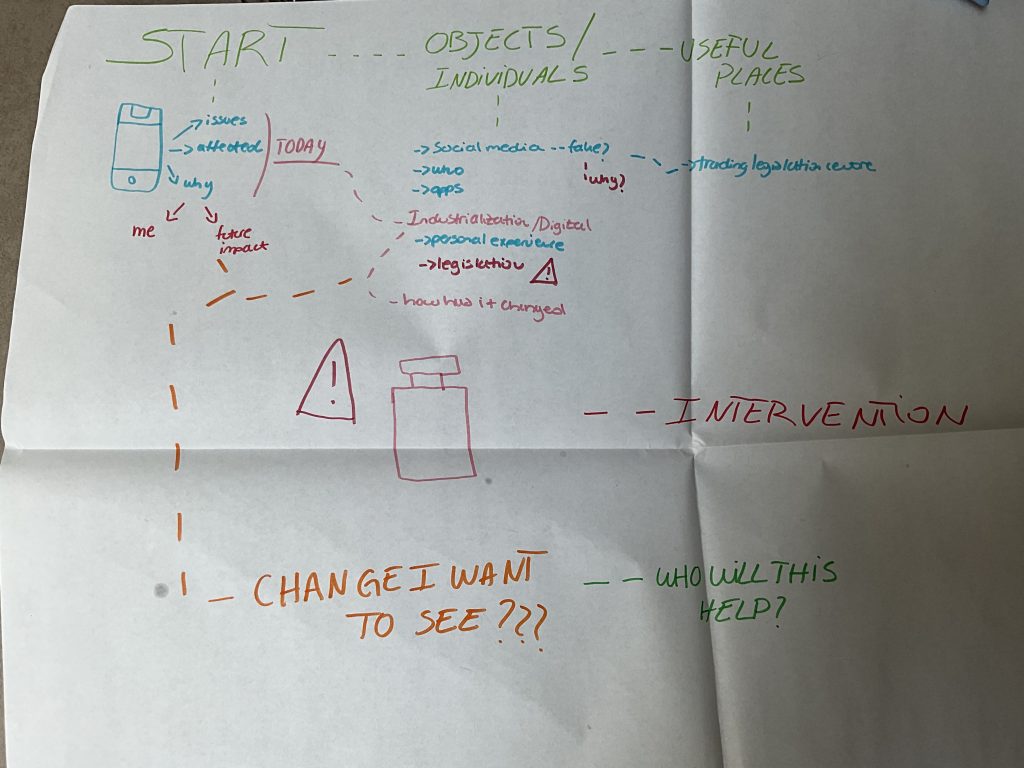 START
OBJECTS/
INDIVIDUALS
USEFUL
PLACES
issues
affected
why
TODAY
me
future
impact
social media -- fake?
why?
who
apps
trading legislation
Industrialization/Digital
personal experience
legislation
!
how has it changed
!
INTERVENTION
CHANGE I WANT
TO SEE???
WHO WILL THIS
HELP?